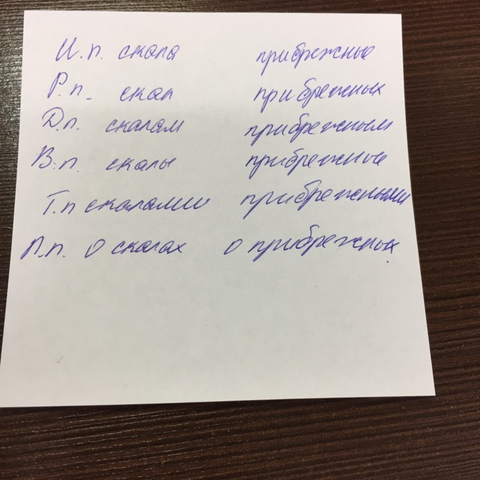 И.п. скала прибрежные
Р.п. скал прибрежных
Д.п. скалам прибрежным
В.п. скалы прибрежные
Т.п скалами прибрежными
П.п. о скалах о прибрежных